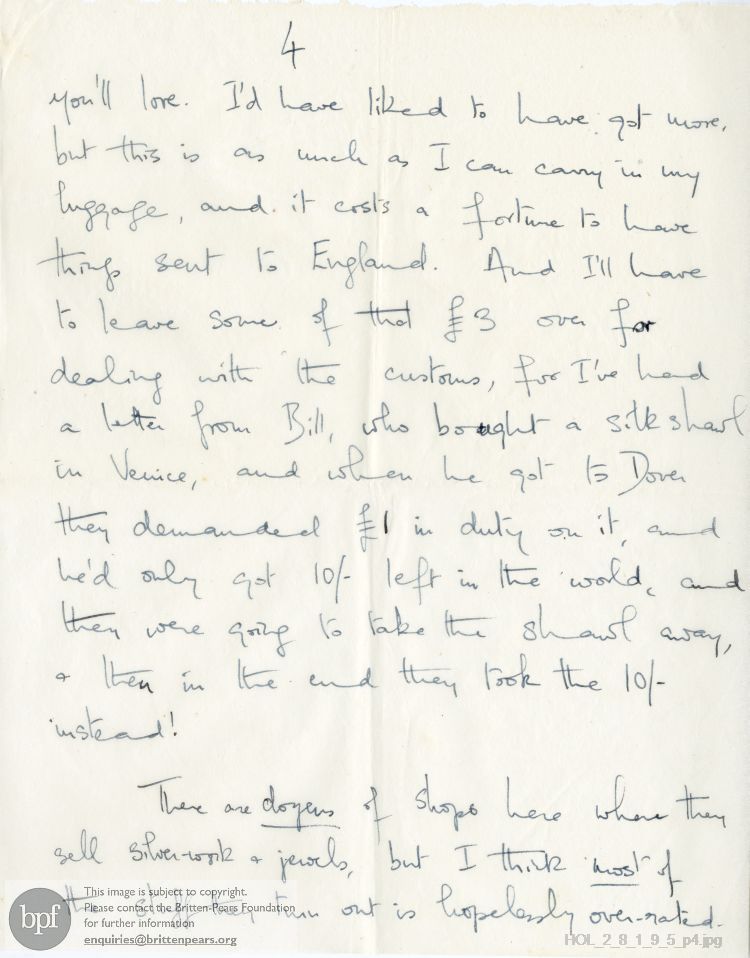 4
you'll love. I'd have liked to have got more,
but this is as much as I can carry in my
luggage, and it costs a fortune to have
things sent to England. And I'll have
to leave some of that £3 over for
dealing with the customs, for I've had
a letter from Bill, who bought a silk shawl
in Venice, and when he got to Dover
they demanded £1 in duty on it, and
he'd only got 10/- left in the world, and
they were going to take the shawl away,
& then in the end they took the 10/-
instead!
There are dozens of shops here where they
sell silver-work & jewels, but I think most of
the stuff they turn out is hopelessly over-rated.
bpf
This image is subject to copyright.
Please contact the Britten-Pears Foundation
for further information
enquiries@brittenpears.org
HOL_2_8_1_9_5_p4.jpg